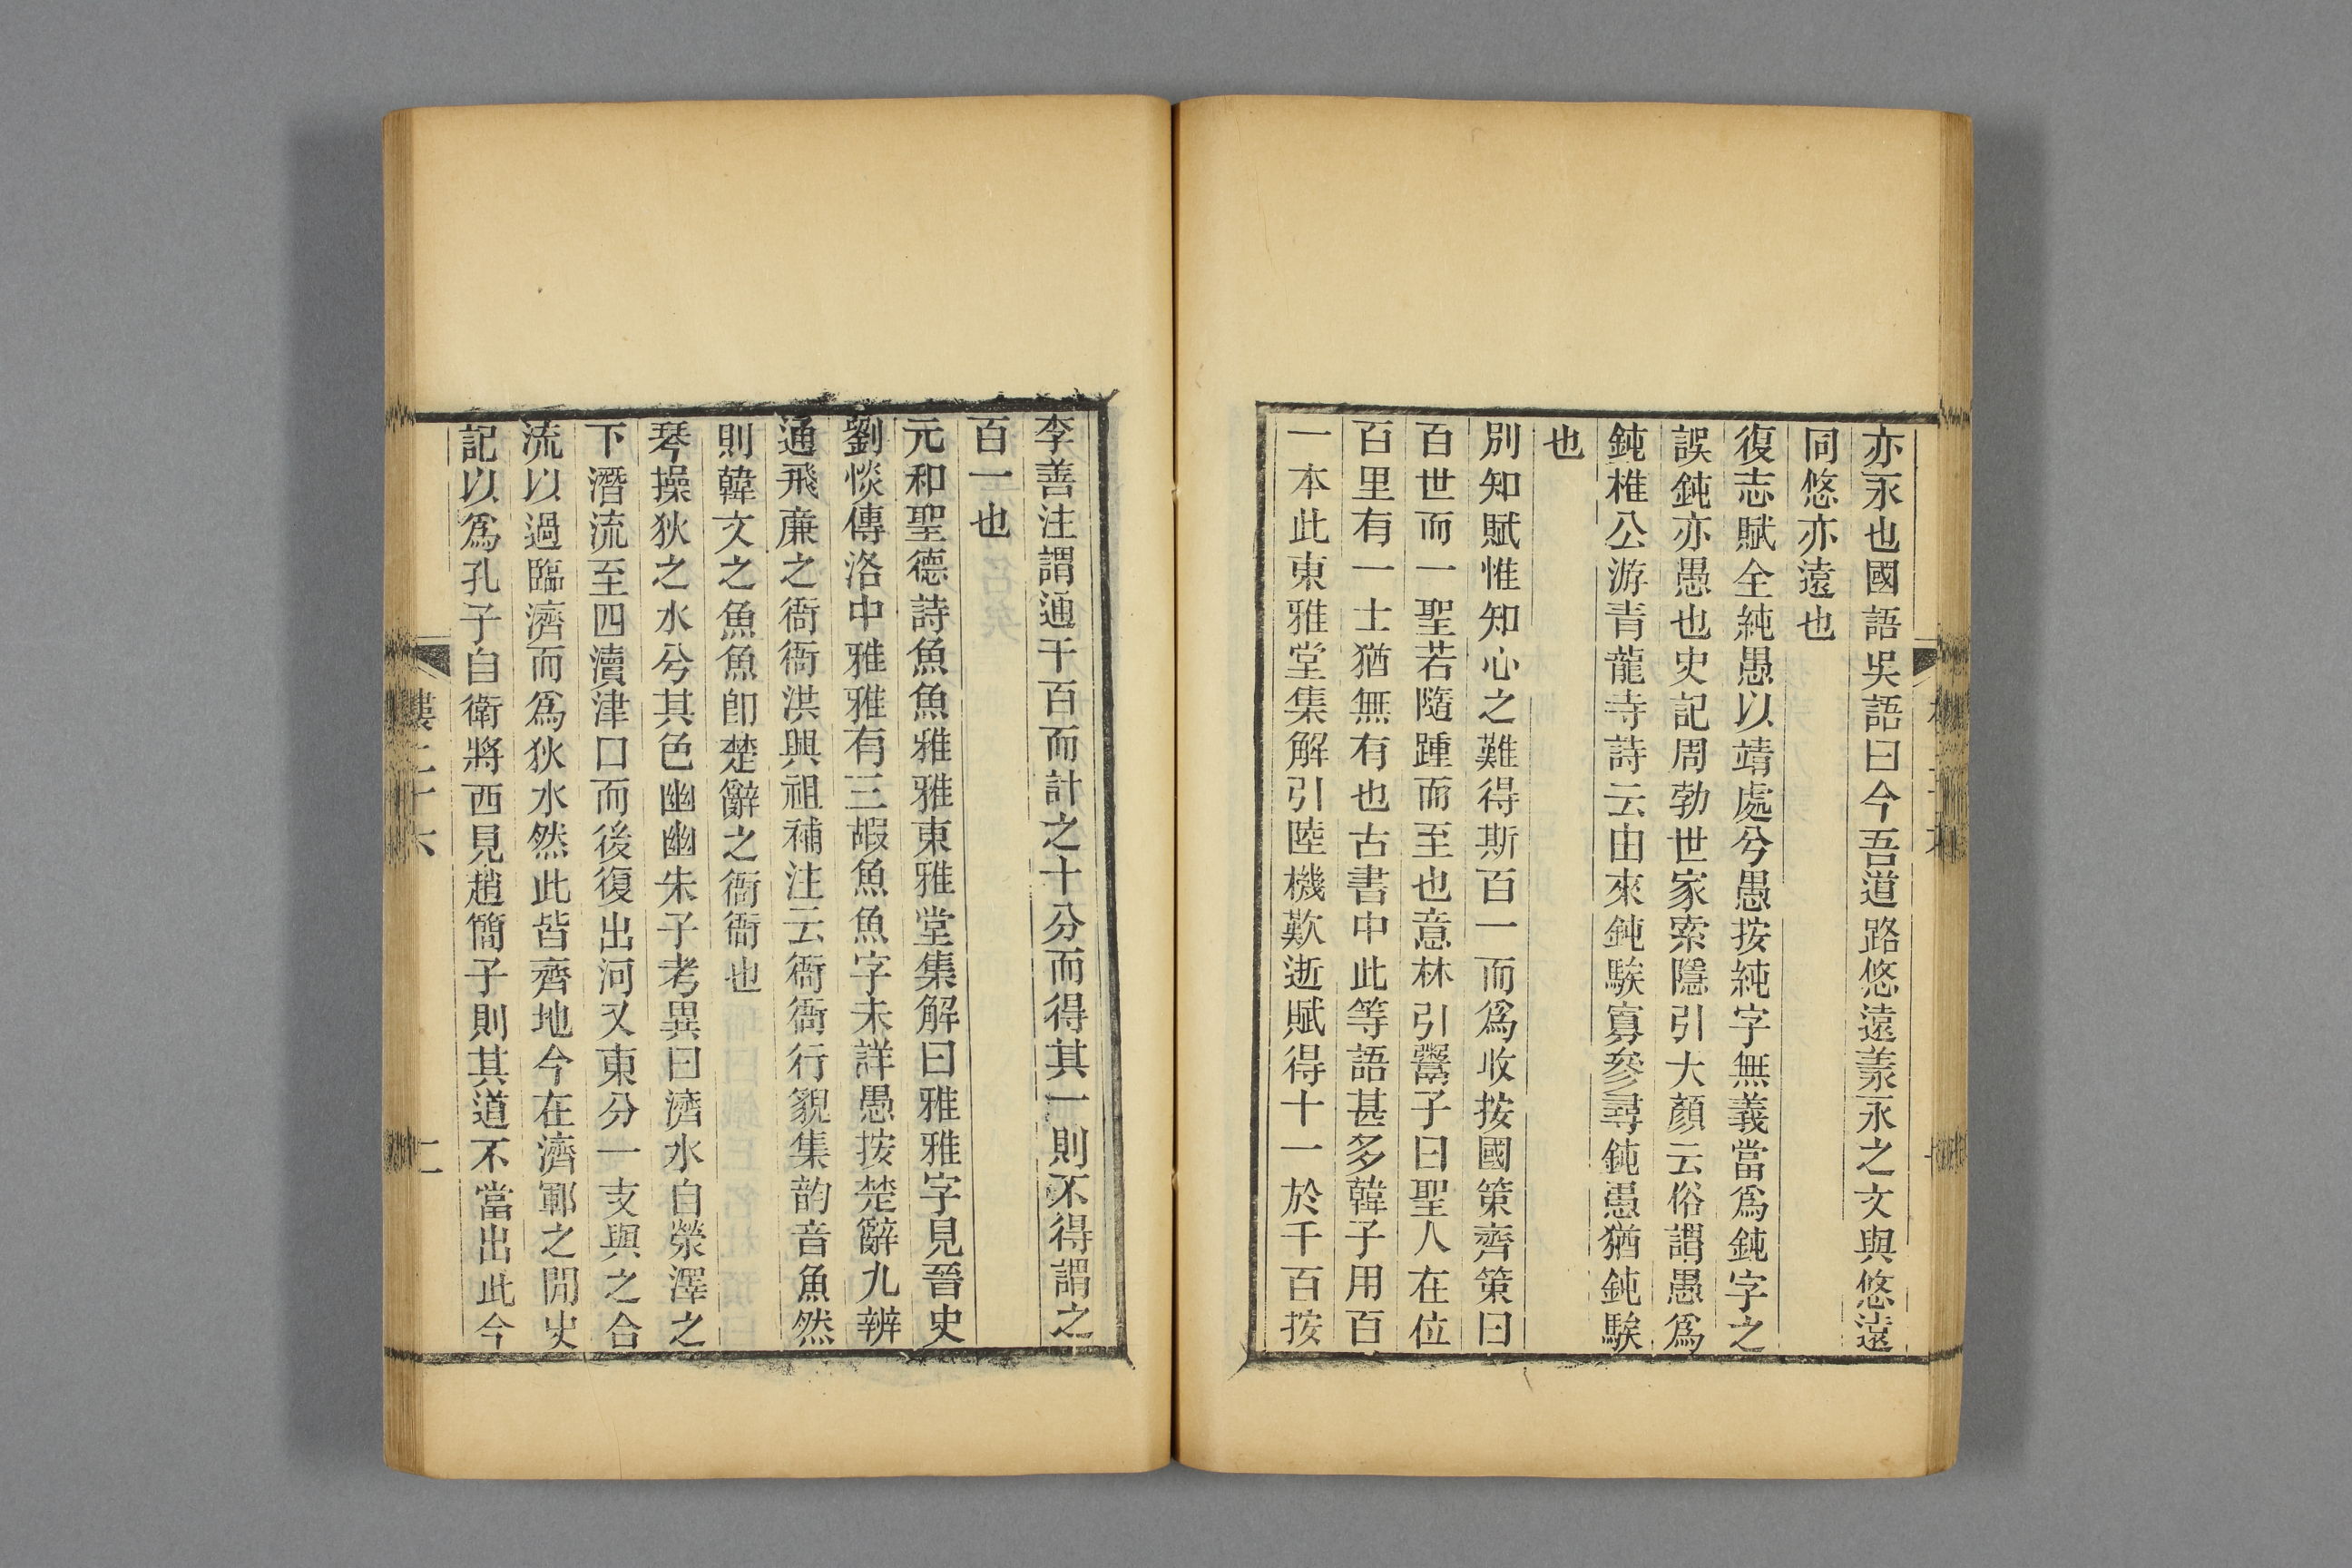 亦永也國語吳語曰今吾道路悠遠羕永之文與悠遠
同悠亦遠也
復志賦全純愚以靖處兮愚按純字無義當爲鈍字之
誤鈍亦愚也史記周勃世家索隱引大顏云俗謂愚爲
鈍椎公游青龍寺詩云由來鈍騃寡參尋鈍愚猶鈍騃
也
別知賦惟知心之難得斯百一而爲收按國策齊策曰
百世而一聖若隨踵而至也意林引鬻子曰聖人在位
百里有一士猶無有也古書中此等語甚多韓子用百
一本此東雅堂集解引陸機歎逝賦得十一於千百按
李善注謂通千百而計之十分而得其一則不得謂之
百一也
元和聖德詩魚魚雅雅東雅堂集解曰雅雅字見晉史
劉惔傳洛中雅雅有三嘏魚魚字未詳愚按楚辭九辨
通飛廉之衙衙洪興祖補注云衙衙行貌集韵音魚然
則韓文之魚魚卽楚辭之衙衙也
琴操狄之水兮其色幽幽朱子考異曰濟水自滎澤之
下潛流至四瀆津口而後復出河又東分一支與之合
流以過臨濟而爲狄水然此皆齊地今在濟鄆之閒史
記以爲孔子自衛將西見趙簡子則其道不當出此今
樓二十六
二